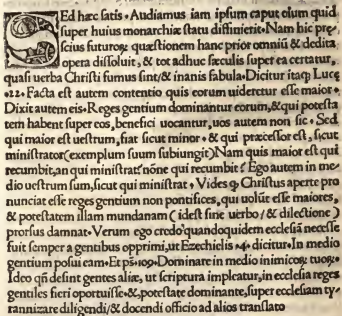 SEd hæc satis. Audiamus iam ipsum caput eIum quid
super huius monarchiæ statu diffinierit. Nam hic præ
scius futuroʀ quæstionem hanc prior omniũ & dedita
opera dissoluit, & tot adhuc sæculis super ea certatur,
quasi uerba Christi fumus sint/& inanis fabula. Dicitur itaqȝ Lucę
.22. Facta est autem contentio quis eorum uideretur esse maior.
Dixit autem eis. Reges gentium dominantur eorum,&qui potesta
tem habent super eos, benefici uocantur, uos autem non sic. Sed
qui maior est uestrum, fiat sicut minor. & qui præcessor est, sicut
ministrator(exemplum suum subiungit)Nam quis maior est qui
recumbit,an qui ministrat? nõne qui recumbit? Ego autem in me/
dio uestrum sum,sicut qui ministrat. Vides ꝙ Christus aperte pro
nunciat esse reges gentium non pontifices, qui uolũt esse maiores,
& potestatem illam mundanam (idest sine uerbo/& dilectione)
prorsus damnat. Verum ego credo quandoquidem ecclesiã necesse
fuit semper a gentibus opprimi,ut Ezechielis .4. dicitur. In medio
gentium posui eam. Et ps̃.109. Dominare in medio inimicoʀ tuoʀ.
Ideo qñ desint gentes aliæ, ut scriptura impleatur,in ecclesia reges
gentiles fieri oportuisse.&,potestate dominante,super ecclesiam ty/
rannizare diligendi/& docendi officio ad alios translato